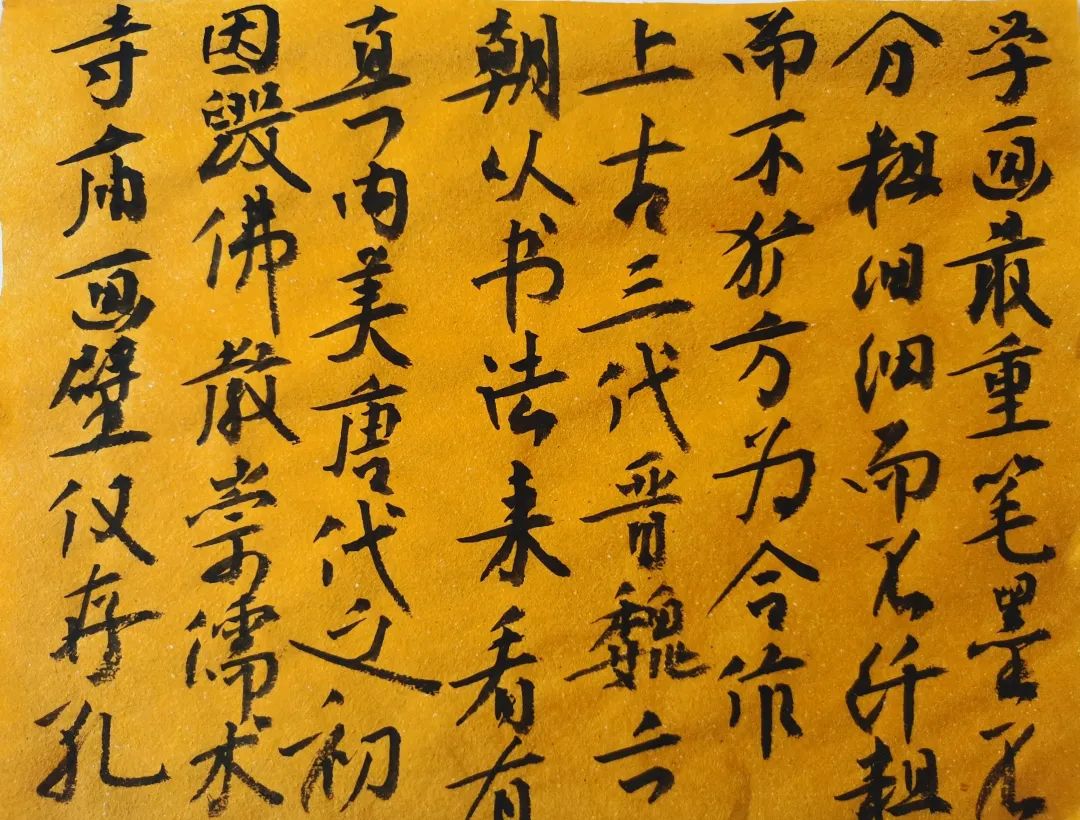 学画最重笔墨不
分粗细细而不纤粗
而不犷方为合作
上古三代晋魏六
朝从书法来看有
真内美唐代之初
因毁佛教崇儒术
寺庙画壁仅存孔